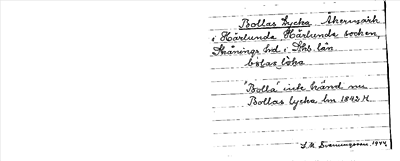 Bollas Lycka Åkermark
i Härlunda Härlunda socken,
Skånings hd i Skbs. län
bo̱las lỏka
"Bolla" icke känd nu
Bollas lycka lm 1842 H.
S. M. Svenningsson. 1944